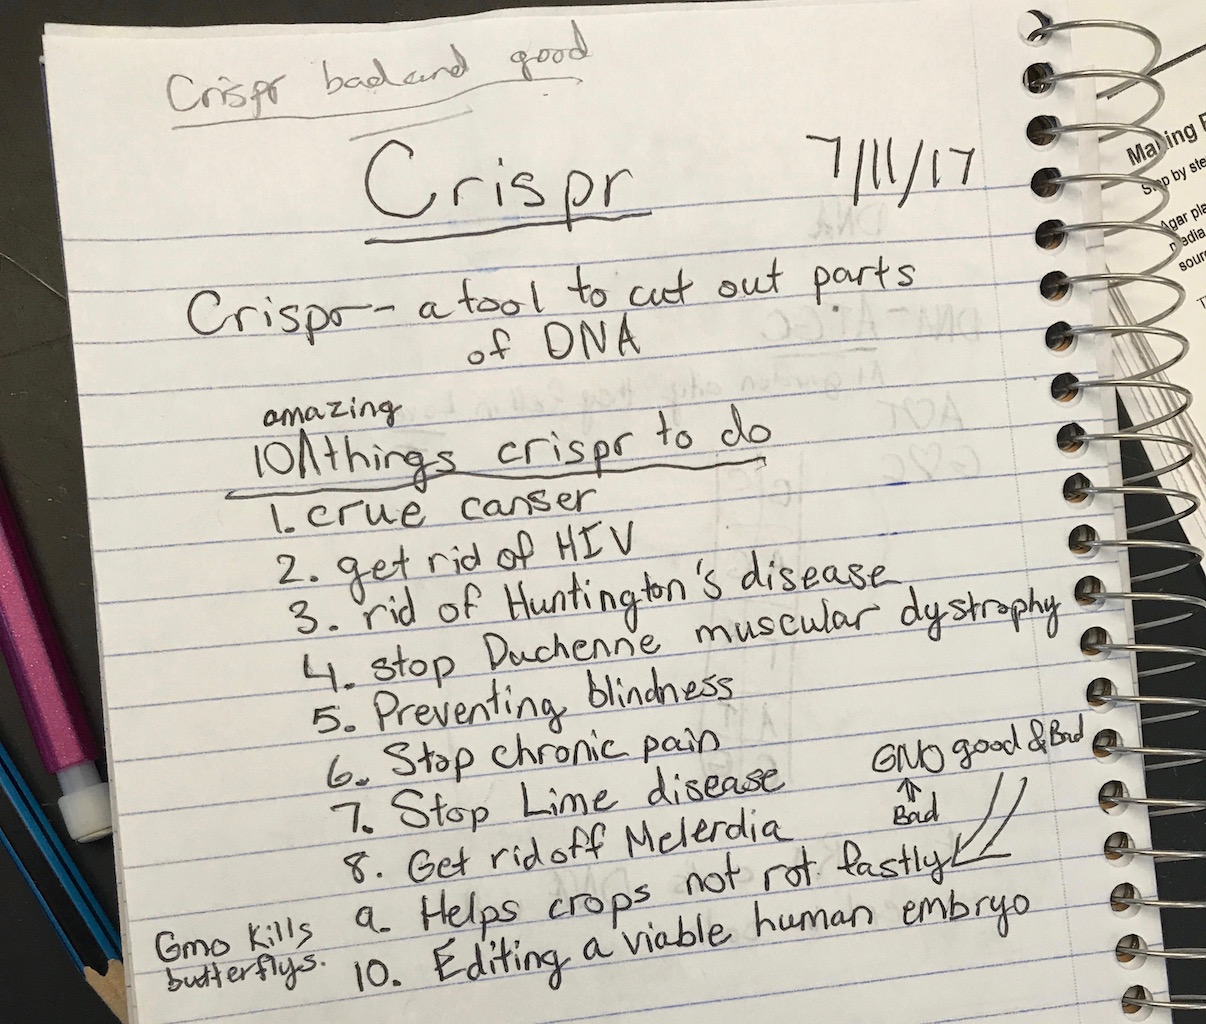 Crispr bad and good
Crispr
7/11/17
Crispr-- a tool to cut out parts
of DNA
amazing
10 ∧ things crispr to do
1. crue canser
2. get rid of HIV
3. rid of Huntington's disease
4. stop Duchenne muscular dystrophy
5. Preventing blindness
6. Stop chronic pain
7. Stop Lime disease
8. Get rid off Melerdia
9. Helps crops not rot fastly
10. Editing a viable human embryo
GMO good & Bad
Bad
Gmo kills
butterflys.
Making
Step by
Agar
DNA